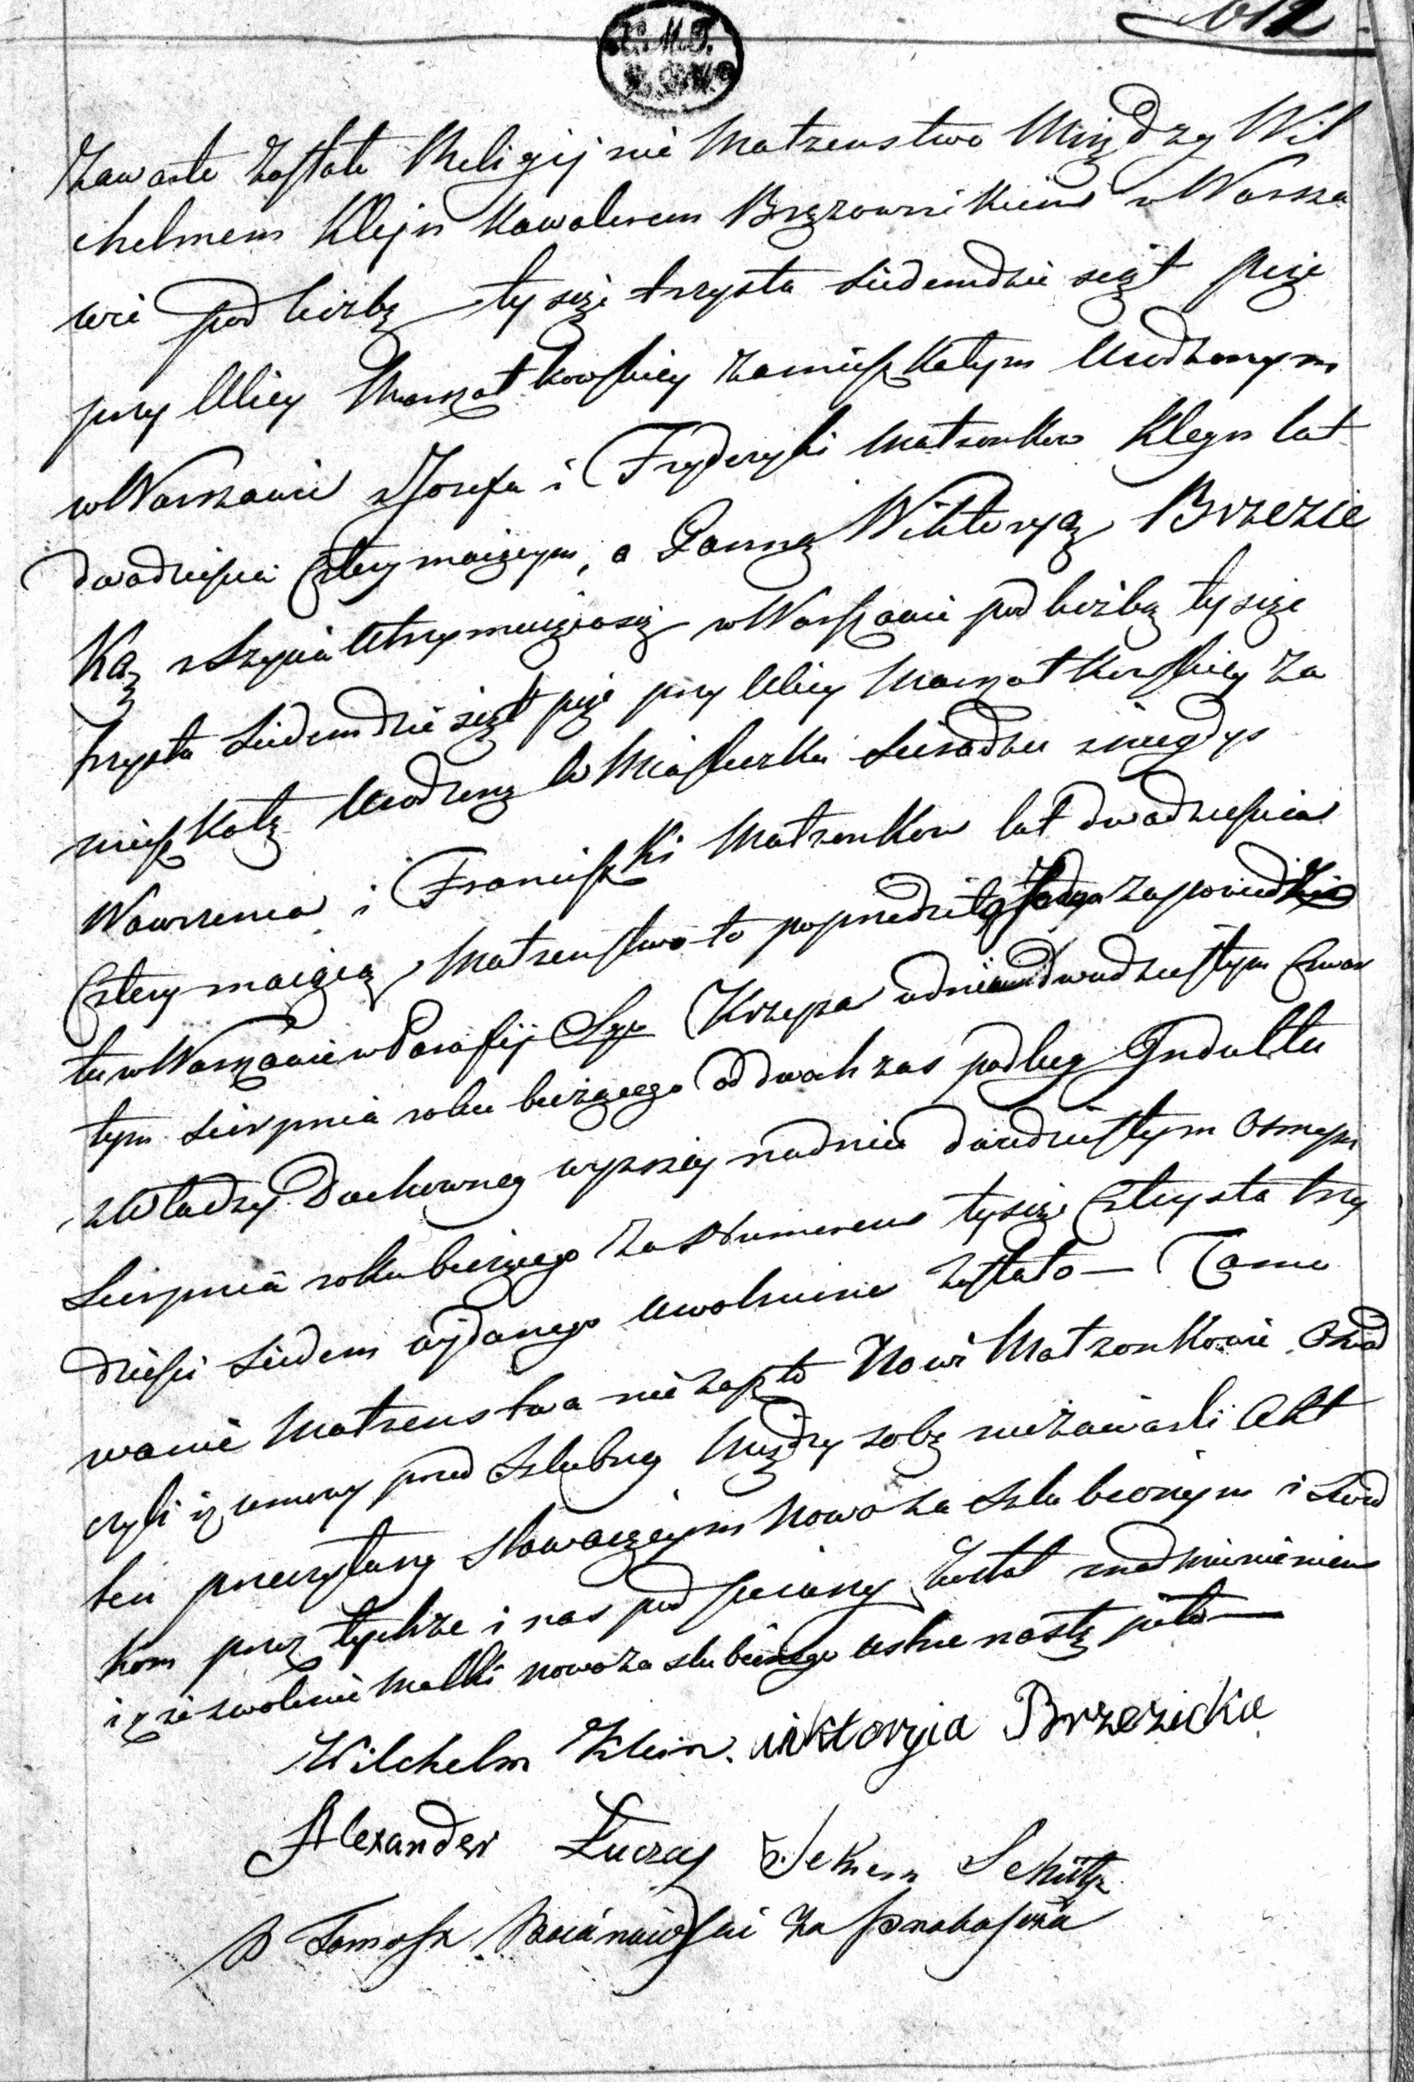 612
C.M.T.
Zawarte zostało Religijnie Małżeństwo Między Wil
chelmem Klejn Kawalerem Brązownikiem w Warsza
wie pod liczbą tysiąc trzysta siedemdziesiąt pięć
przy Ulicy Marszałkowskiey zamieszkałym Urodzonym
w Warszawie z Jozefa i Fryderyki Małżonków Klejn lat
dwadzieścia Cztery maiącym, a Panną Wiktoryą Brzezic
ką z szycia utrzymuiącąsię w Warszawie pod liczbą tysiąc
trzysta siedemdziesiąt pięć przy Ulicy Marszałkowskiey za
mieszkałą Urodzoną w Miasteczku Sieradzu z niegdys
Wawrzeńca i Franciszki Małżonków lat dwadzieścia
Cztery maiącą, Małżeństwo to poprzedziła zapowiedź
tu w Warszawie w Parafij Sgo Krzyża w dniu dwudziestym Czwar
tym sierpnia roku bieżącego od dwóch zas podług Indultu
z Władzy Duchowney wyższey na dniu dwudziestym Osmym
Sierpnia roku bieżącego za Numerem tysiąc Czterysta trzy
dzieści siedem wydanego uwolnienie zostało — Tamo
wanie Małżeństwa nie zaszło Nowi Małżonkowie Oświad
czyli iż umowy przed szlubney Między sobą niezawarli Akt
ten przeczytany Stawaiącym Nowo zaszlubionym i świad
kom przez tychże i nas podpisany został z nadmienieniem
iż zezwolenie Matki nowozaslubionego ustnie nastąpiło —
Wilchelm Klein. wiktoryia Brzezicka
Alexander Łuczaj Schütz
X Tomasz za Proboszcza